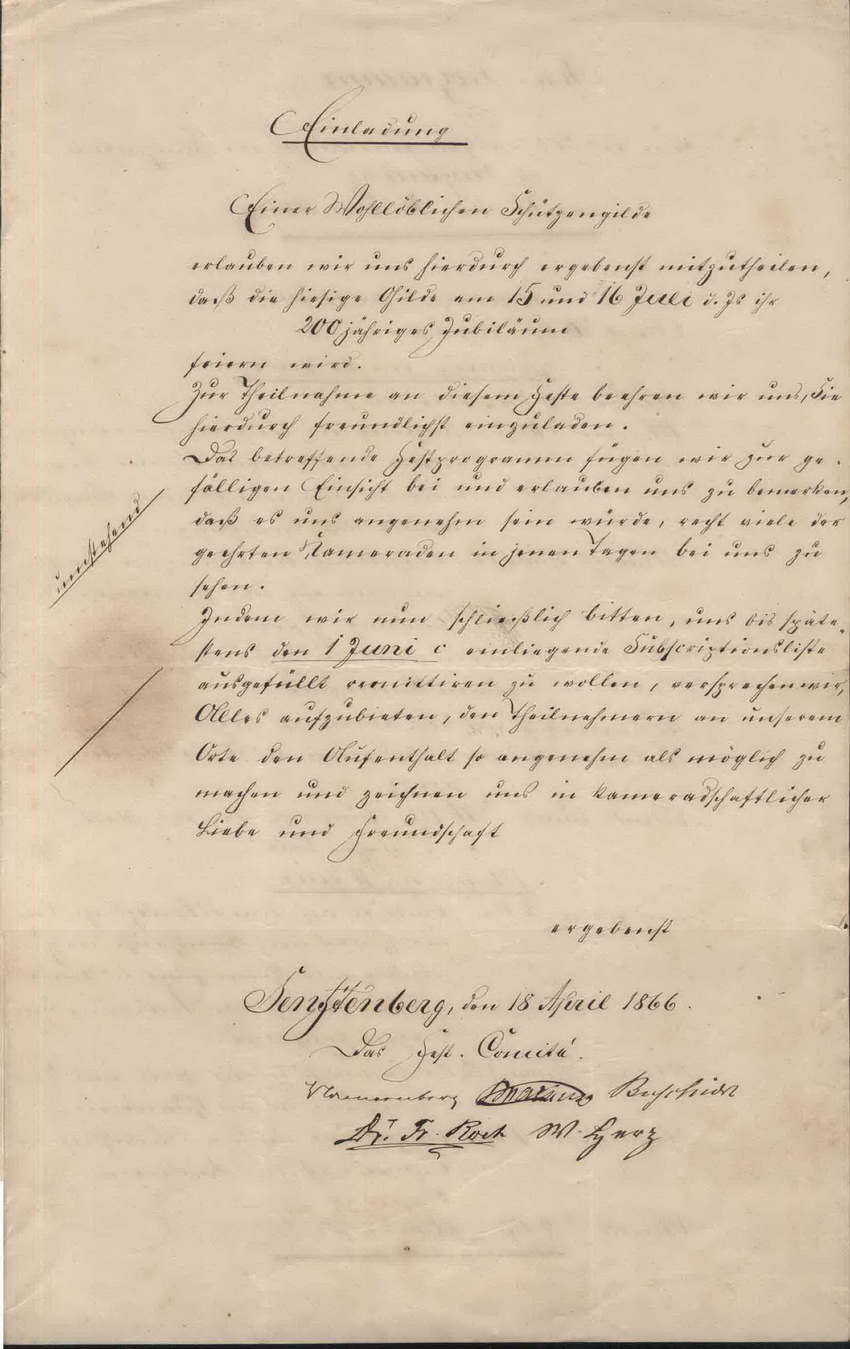 Einladung
Einer Wohllöblichen Schützengilde
erlauben wir uns hierdurch ergebenst mitzutheilen,
daß die hiesige Gilde am 15 und 16 Juli d. Js ihr
200jähriges Jubiläum
feiern wird.
Zur Theilnahme an diesem Feste beehren wir uns, Sie
hierdurch freundlichst einzuladen.
Das betreffende Festprogramm fügen wir zur ge-
fälligen Einsicht bei und erlauben uns zu bemerken,
umstehend
daß es uns angenehm sein würde, recht viele der
geehrten Kameraden in jenen Tagen bei uns zu
sehen.
Indem wir nun schließlich bitten, uns bis späte-
stens den 1 Juni c einliegende Subscriptionsliste
ausgefüllt remittiren zu wollen, versprechen wir,
Alles aufzubieten, den Theilnehmern an unserem
Orte den Aufenthalt so angenehm als möglich zu
machen und zeichnen uns in kameradschaftlicher
Liebe und Freundschaft
ergebenst
Senftenberg, den 18 April 1866.
Das Fest-Comité.
Dr. Fr. Koch W. Herz